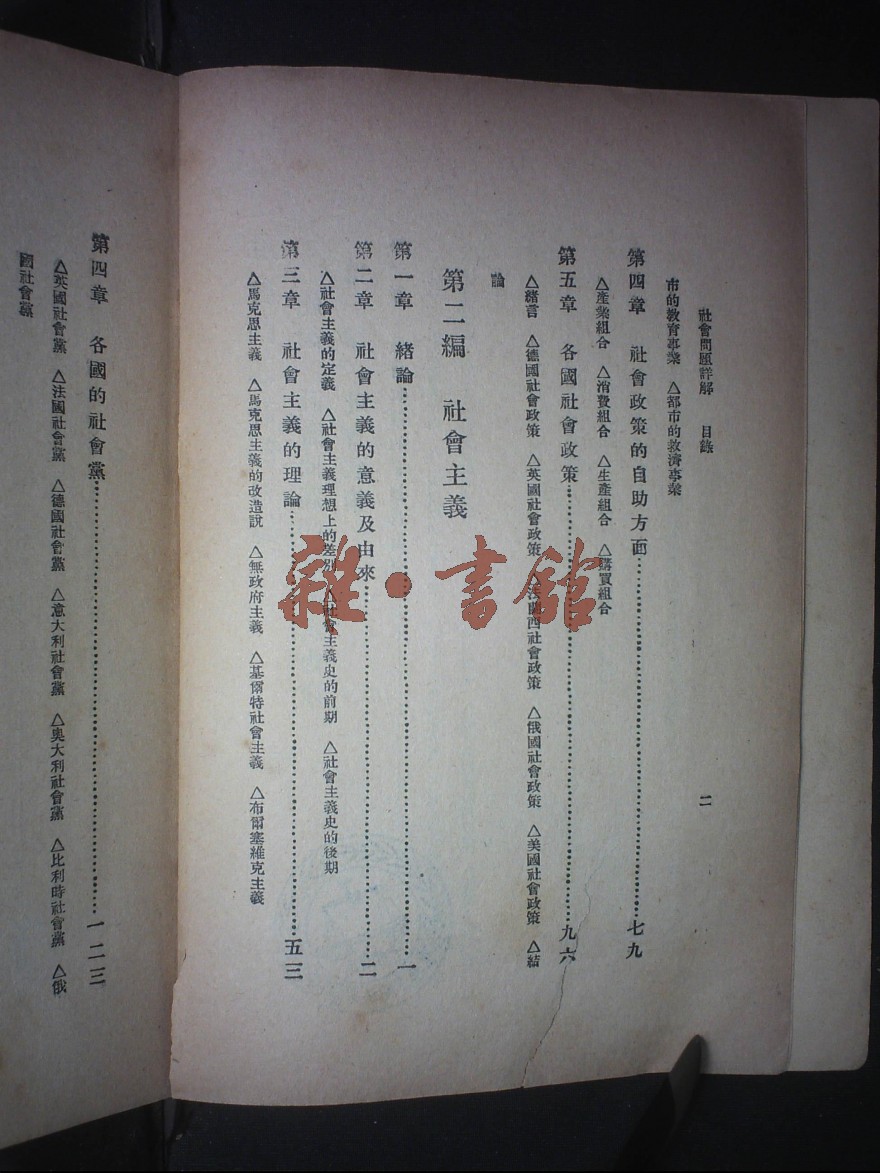 社會問題詳解 目錄 二
市的教育事業 △都市的救濟事業
第四章 社會政策的自助方面…………七九
△產業組合 △消費組合 △生產組合 △購買組合
第五章 各國社會政策…………九六
△緒言 △德國社會政策 △英國社會政策 △法蘭西社會政策 △俄國社會政策 △美國社會政策 △結
論
第二編 社會主義
第一章 緒論…………一
第二章 社會主義的意義及由來…………二
△社會主義的定義 △社會主義理想上的差別 △社會主義史的前期 △社會主義史的後期
第三章 社會主義的理論…………五三
△馬克思主義 △馬克思主義的改造說 △無政府主義 △基爾特社會主義 △布爾塞維克主義
第四章 各國的社會黨…………一二三
△英國社會黨 △法國社會黨 △德國社會黨 △意大利社會黨 △奧大利社會黨 △比利時社會黨 △俄
國社會黨
雜·書館